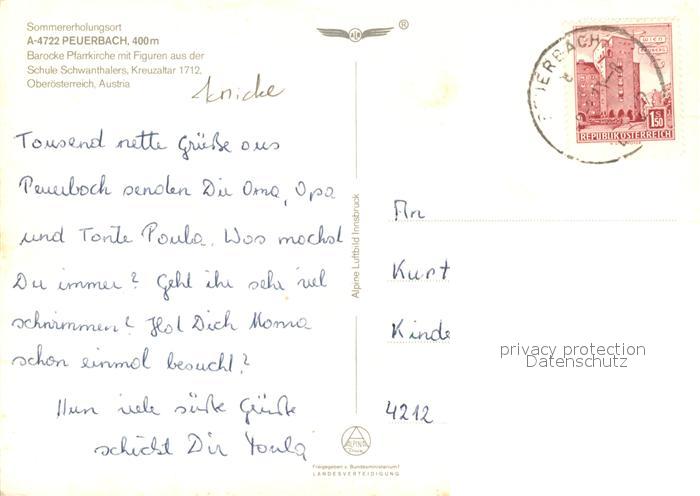 Sommererholungsort
A-4722 PEUERBACH, 400m
Barocke Pfarrkirche mit Figuren aus der
Schule Schwanthalers, Kreuzaltar 1712.
Oberösterreich, Austria
Knicke
Tausend nette Grüße aus
Peuerbach senden Dir Oma, Opa
und Tante Paula. Was machst
Du immer? Geht ihr sehr viel
schwimmen? Hat Dich Mama
schon einmal besucht?
Nun viele süße Grüße
schickt Dir Paula
Alpine Luftbild Innsbruck
ALPINE
Freigegeben v. Bundesministerium f.
LANDESVERTEIDIGUNG
®
PEUERBACH
WIEN
1.50
REPUBLIK ÖSTERREICH
An
Kurt
Kinde
4212
privacy protection
Datenschutz